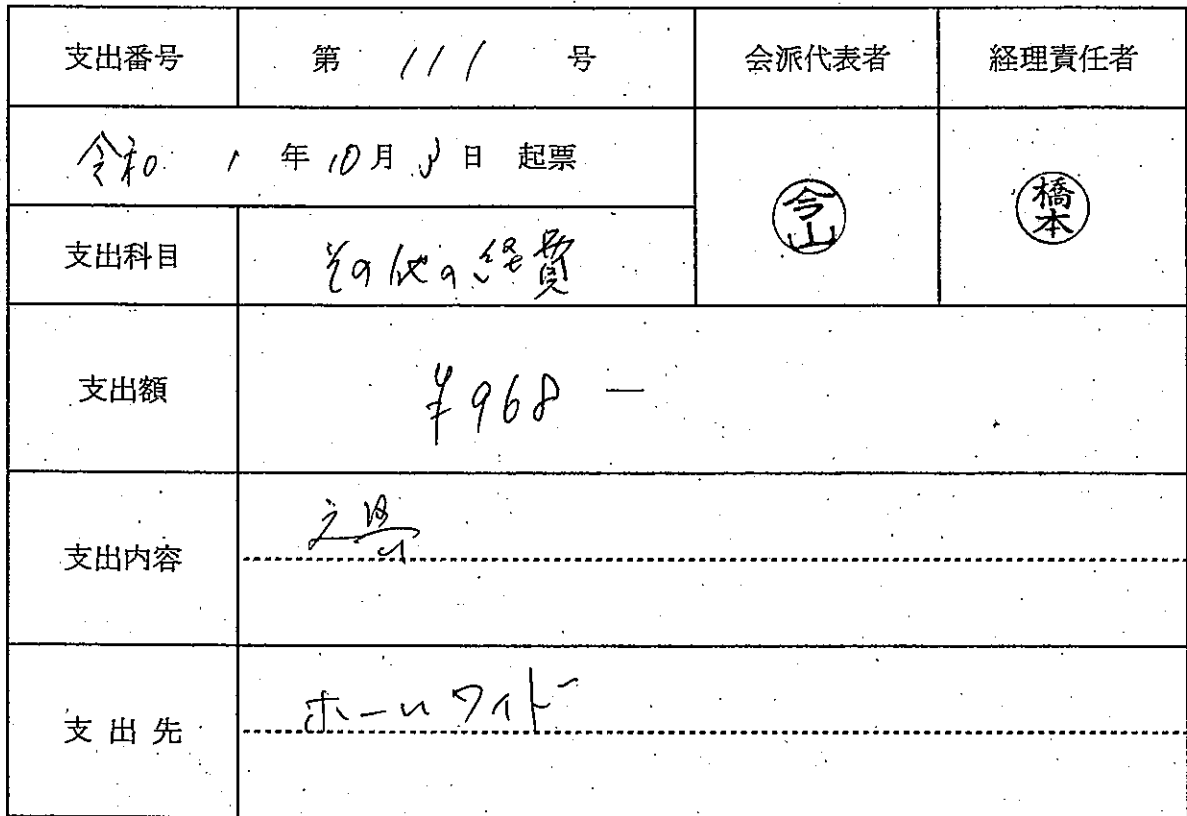 支出番号 第 111 号 会派代表者 経理責任者
令和 1 年 10 月 3 日 起票
今山 橋本
支出科目 その他の経費
支出額 ¥968 ―
支出内容
支出先 ホールワイド